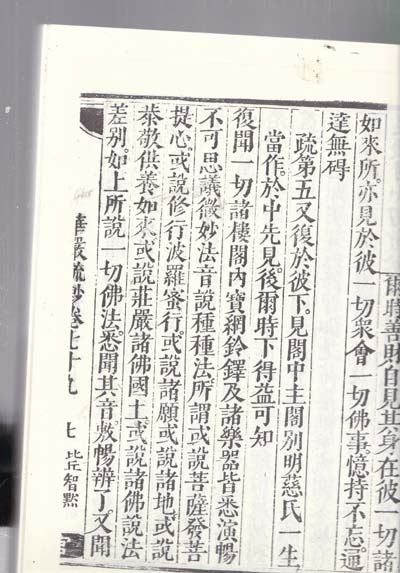 爾時善財自見其身在彼一切諸
如來所。亦見於彼一切衆會一切佛事。憶持不忘。通
達無碍
疏第五又復於彼下。見閣中主閣別明慈氏一生
當作。於中先見。後爾時下得益可知
復聞一切諸樓閣內寶網鈴鐸及諸樂器皆悉演暢
不可思議微妙法音說種種法。所謂或說菩薩發菩
提心。或說修行波羅蜜行。或說諸願或說諸地。或說
恭敬供養如來。或說莊嚴諸佛國土。或說諸佛說法
差别。如上所說一切佛法。悉聞其音。敷暢辨了。又聞
華嚴疏鈔卷七十九 七 丘智黙